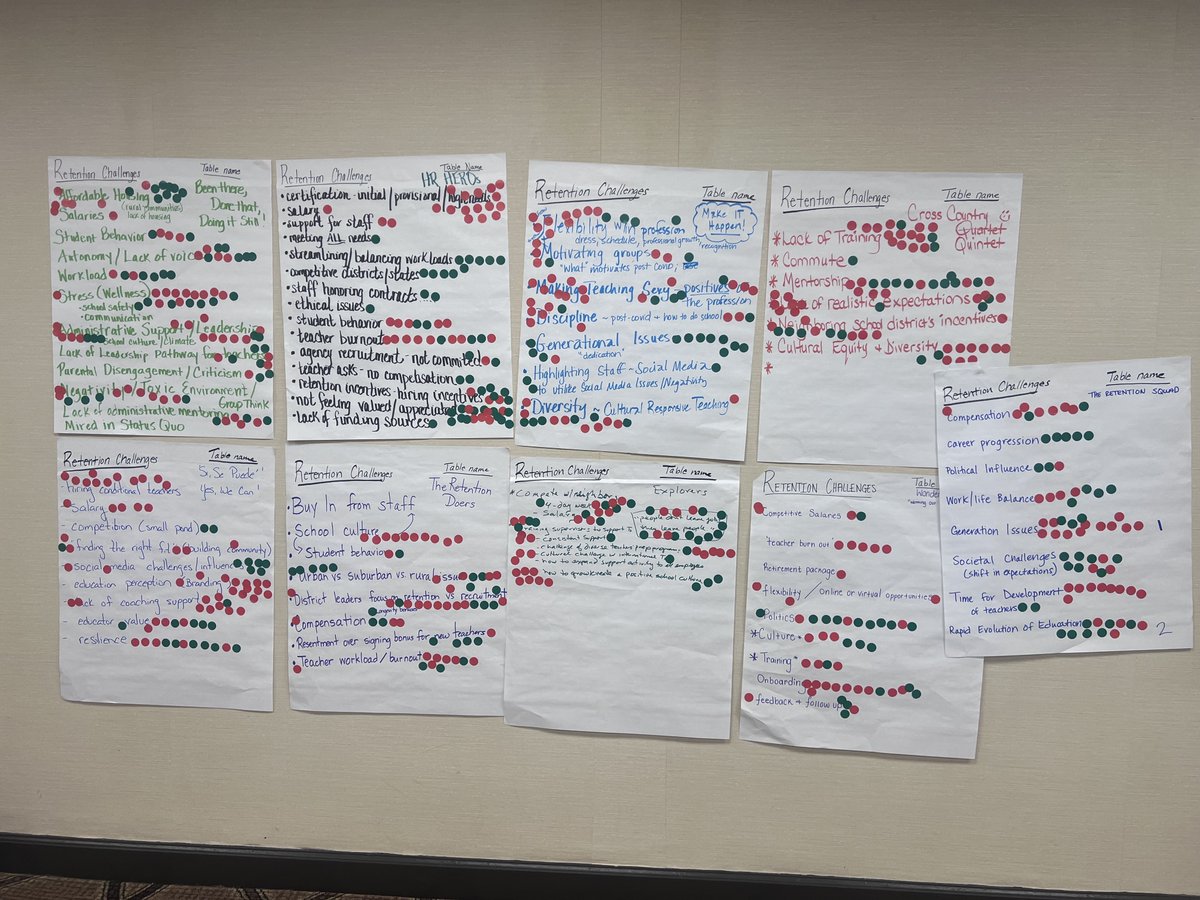 Retention Challenges
Table name
Been there,
Done that,
Doing it Still!
Affordable Housing
(rural communities)
lack of housing
Salaries
Student Behavior
Autonomy/Lack of voice
Workload
Stress (Wellness)
- school safety
- communication
Administrative Support/Leadership
School culture/climate
Lack of Leadership Pathway for teachers
Parental Disengagement/Criticism
Negativity/Toxic Environment/
Group Think
Lack of administrative mentoring
Mired in Status Quo
Retention Challenges
Table Name
HR HEROs
• certification - initial/provisional/
• salary
• support for staff
• meeting ALL needs
• streamlining/balancing workloads
• competitive districts/states
• staff honoring contracts
• ethical issues
• student behavior
• teacher burnout
• agency recruitment - not commited
• teacher asks - no compensation
• retention incentives - hiring incentives
• not feeling valued/appreciated
• lack of funding sources
Retention Challenges
Table name
Make IT
Happen!
Flexibility with profession
dress, schedule, professional growth,
recognition
Motivating groups
"What" motivates post covid,
Making Teaching Sexy - positives of
the profession
Discipline ~ post-covid + how to do school
Generational Issues
"dedication"
• Highlighting Staff ~ Social Media
to utilize Social Media Issues/Negativity
Diversity ~ Cultural Responsive Teaching
Retention Challenges
Table name
Cross Country
Quartet
Quintet
* Lack of Training
* Commute
* Mentorship
of realistic expectations
* Neighboring school district's incentives
* Cultural Equity + Diversity
*
Retention Challenges
Table name
THE RETENTION SQUAD
Compensation
Career progression
Political Influence
Work/life Balance
Generation Issues
1
Societal Challenges
(shift in expectations)
Time for Development
of teachers
Rapid Evolution of Education
2
Retention Challenges
Table name
"Si, Se Puede"
Yes, We Can!
- hiring conditional teachers
- Salary
- competition (small pond)
- finding the right fit (building community)
- social media challenges/influence
- education perception/Branding
- Lack of coaching support
- educator value
- resilience
Retention Challenges
Table name
The Retention
Doers
• Buy In from staff
• School culture
Student behavior
• Urban vs suburban vs rural issues
• District leaders focus on retention vs recruitment
Longevity bonuses
• Compensation
• Resentment over signing bonus for new teachers
• Teacher workload/burnout
Retention Challenges
Table name
Explorers
* Compete w/neighbors
- 4-day week
- Salary
people don't leave jobs
they leave people
supervisors to support
- consistent support
- cultural challenges w international
- how to expand support activity to all employees
- how to grow/create a positive school culture
RETENTION CHALLENGES
Table
Competitive Salaries
"teacher burn out"
Retirement package
flexibility / online or virtual opportunities
Politics
* Culture *
* Training "
Onboarding
feedback + follow up